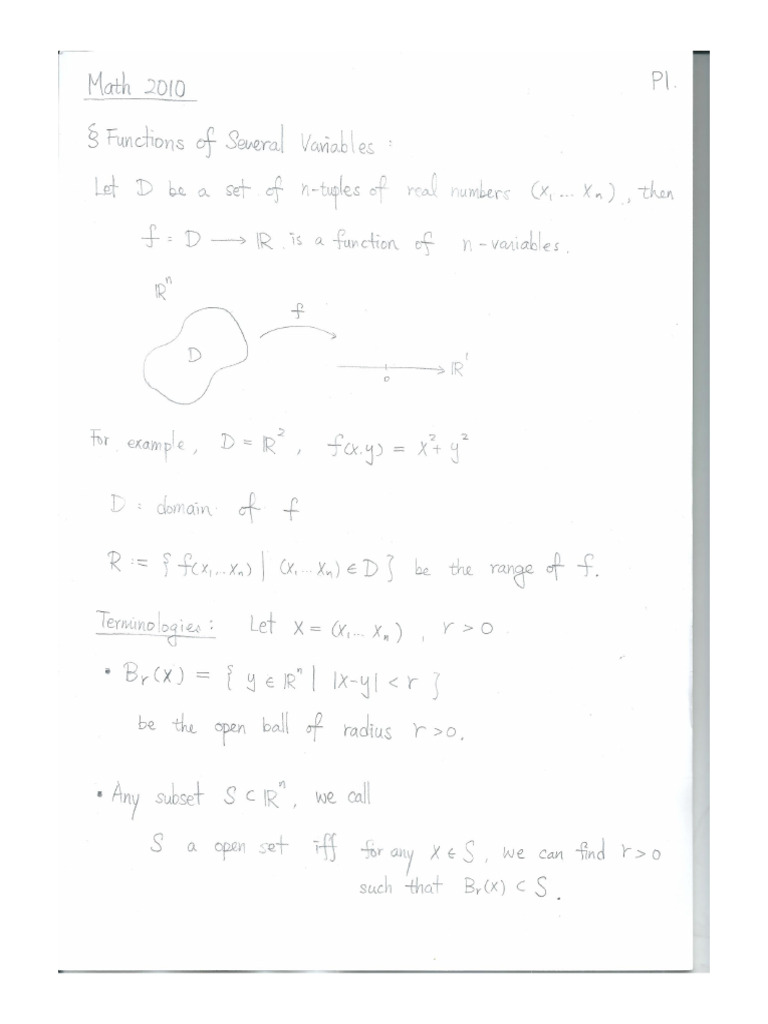 Math 2010
P1.
§ Functions of Several Variables :
Let D be a set of n-tuples of real numbers (x₁ ... xₙ), then
f : D ⟶ ℝ is a function of n-variables.
ℝⁿ
f
D
ℝ¹
0
For example, D = ℝ², f(x,y) = x² + y²
D = domain of f
R := { f(x₁,...xₙ) | (x₁...xₙ) ∈ D } be the range of f.
Terminologies : Let x = (x₁...xₙ), r > 0
• Bᵣ(x) = { y ∈ ℝⁿ | |x-y| < r }
be the open ball of radius r > 0.
• Any subset S ⊂ ℝⁿ, we call
S a open set iff for any x ∈ S, we can find r > 0
such that Bᵣ(x) ⊂ S.